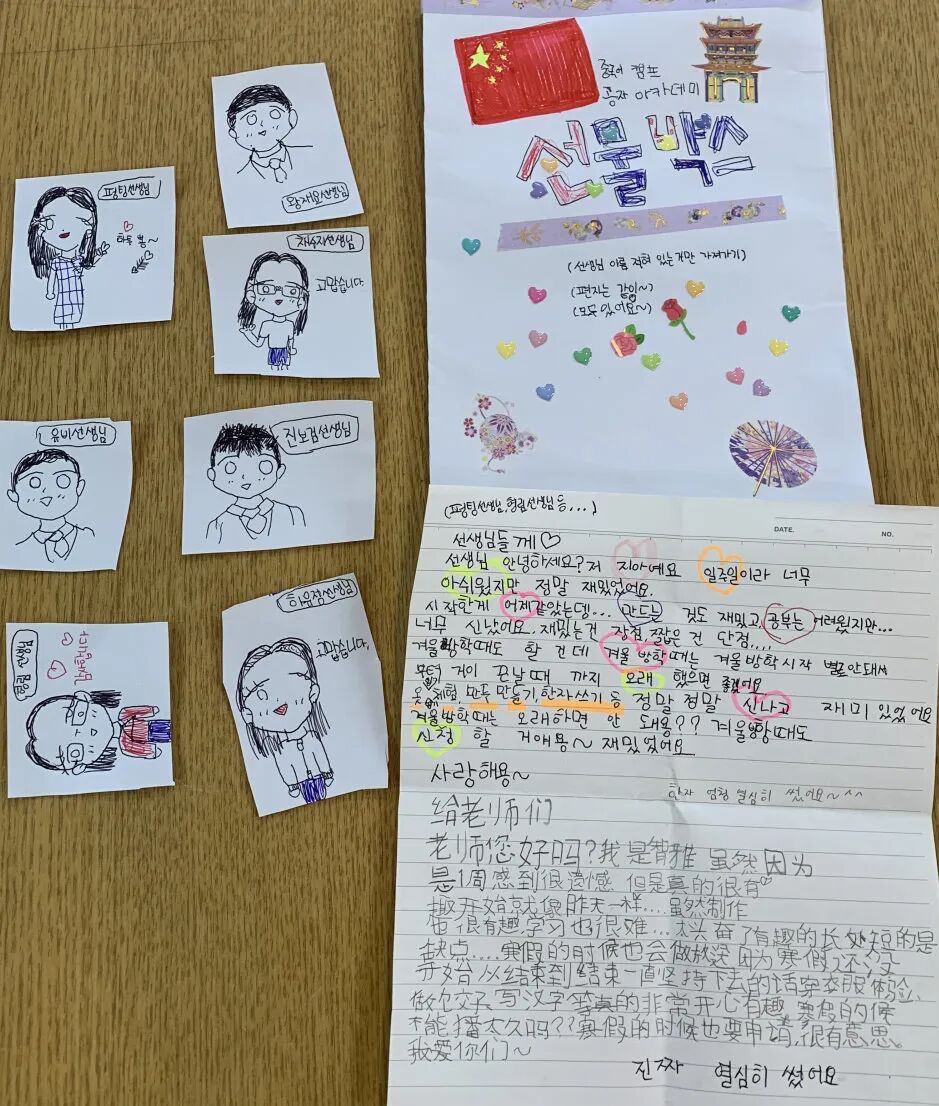 왕재요선생님
펑팅선생님
하뚜 뿅~
채수지선생님
고맙습니다.
유비선생님
진보검선생님
하윤정선생님
고맙습니다.
중국어 캠프
공자 아카데미
선물 박스
(선생님 이름 적혀 있는것만 가져가기)
(편지는 같이~)
(모두 있어요~)
DATE. NO.
(펑팅선생님, 형림선생님 등...)
선생님들께♡
선생님 안녕하세요? 저 지아예요 일주일이라 너무
아쉬웠지만 정말 재밌었어요.
시작한게 어제같았는데... 만드는 것도 재밌고, 공부는 어려웠지만...
너무 신났어요. 재밌는건 장점 짧은 건 단점....
겨울방학때도 할 건데 겨울 방학때는 겨울방학시작
부터 거이 끈날때 까지 오래 했으면 좋겠어요
옷 체험, 만두 만들기, 한자쓰기 등 정말 정말 신나고 재미 있었어요
겨울방학때는 오래하면 안 돼용?? 겨울방학때도
신청 할 거애용~ 재밌었어요
사랑해용~
한자 엄청 열심히 썼어요~^^
给老师们
老师您好吗?我是智雅 虽然因为
是1周感到很遗憾 但是真的很有♡
趣开始就像昨天一样....虽然制作
也很有趣学习也很难...太兴奋了有趣的长处短的是
缺点....寒假的时候也会做放没因为寒假还没
开始 从结束到结束一直坚持下去的话穿衣服体验、
做饺子、写汉字等真的非常开心有趣 寒假的候
不能播太久吗??寒假的时候也要申请,很有意思。
我爱你们~
진짜 열심히 썼어요